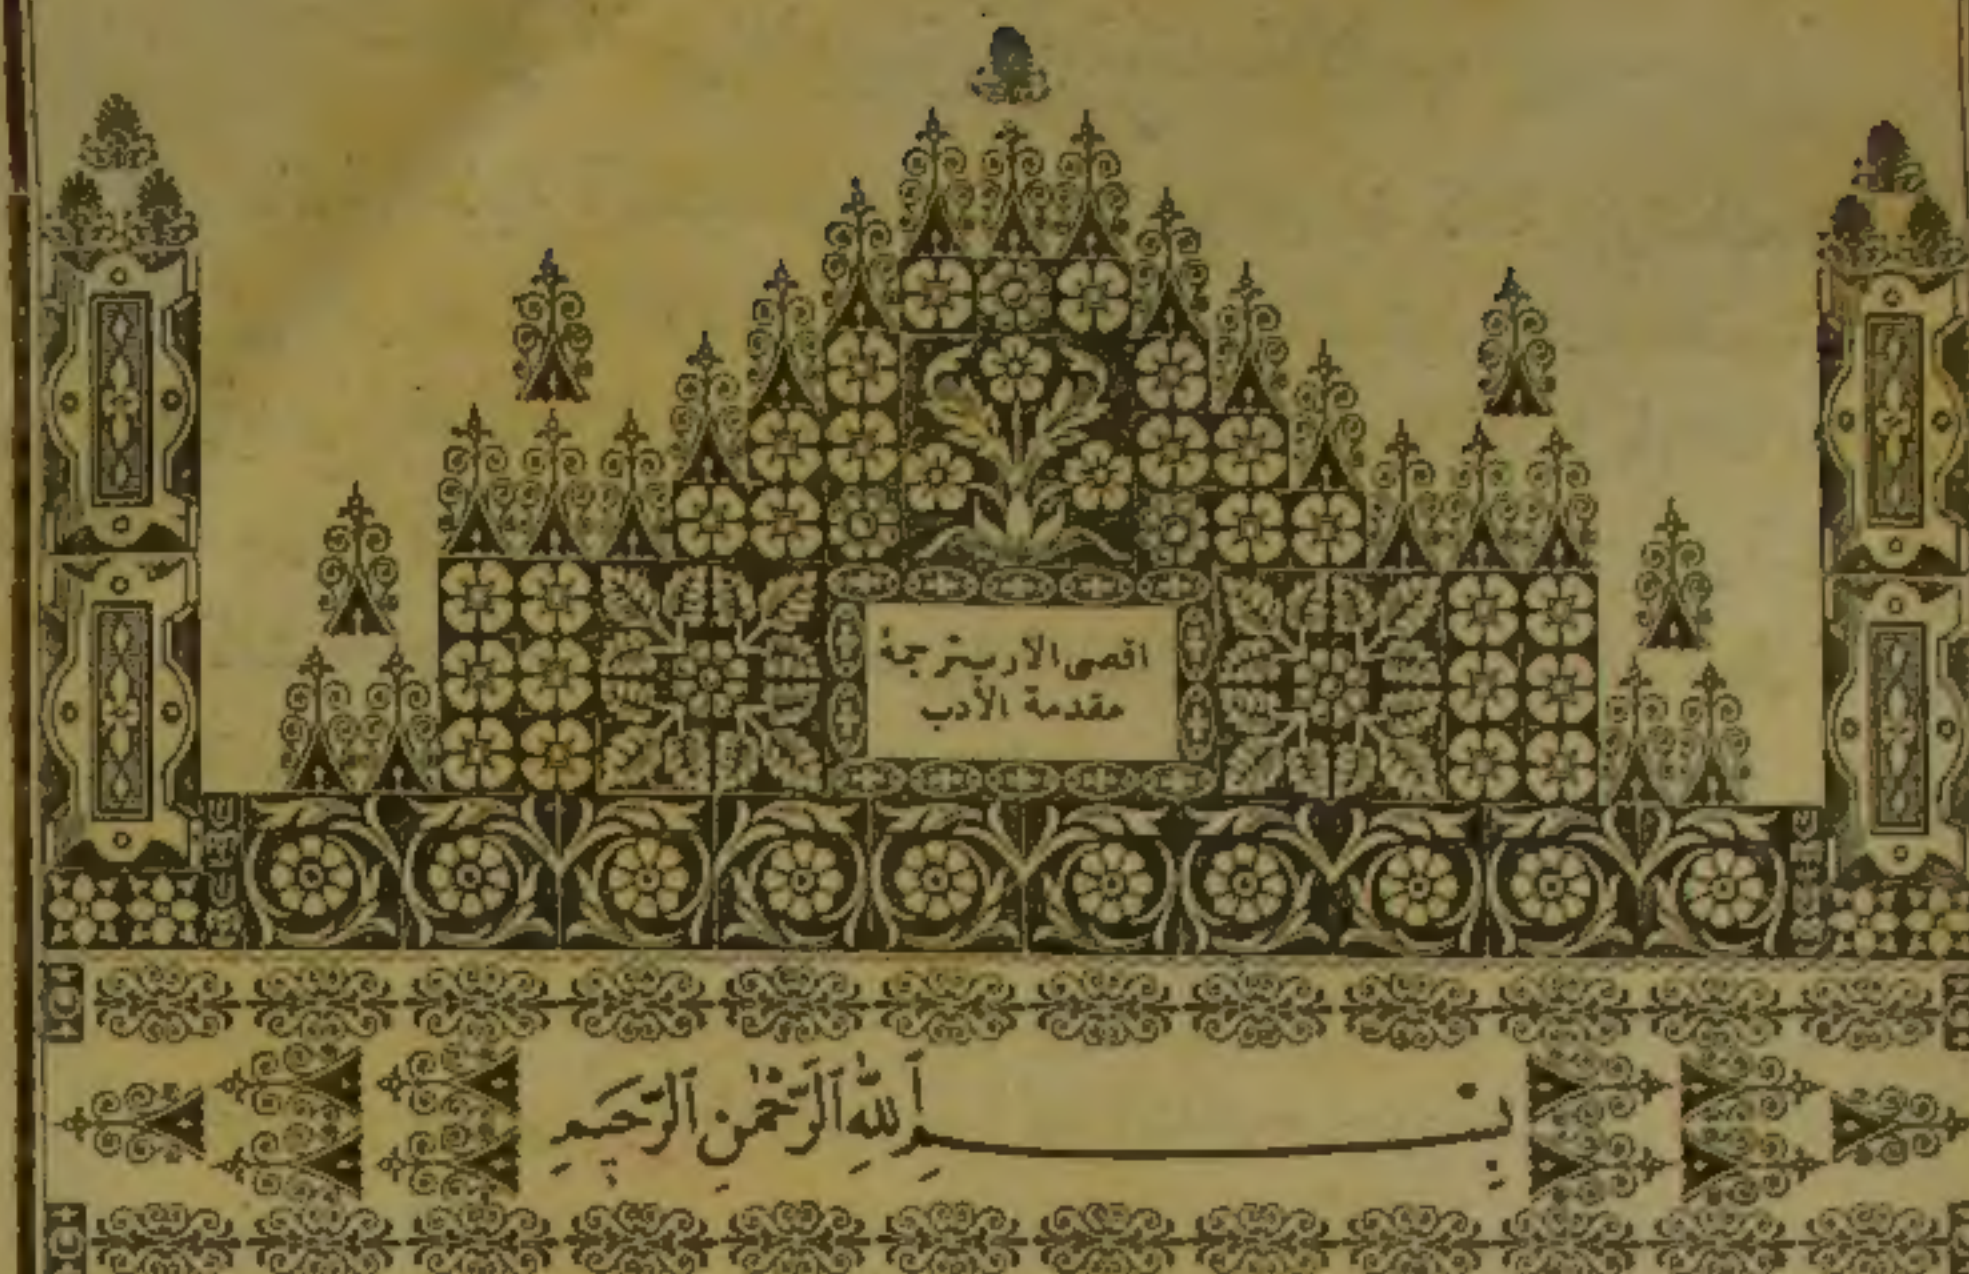 اقصى الارب بترجمة
مقدمة الأدب
بِسْمِ ٱللّٰهِ ٱلرَّحْمٰنِ ٱلرَّحِيمِ